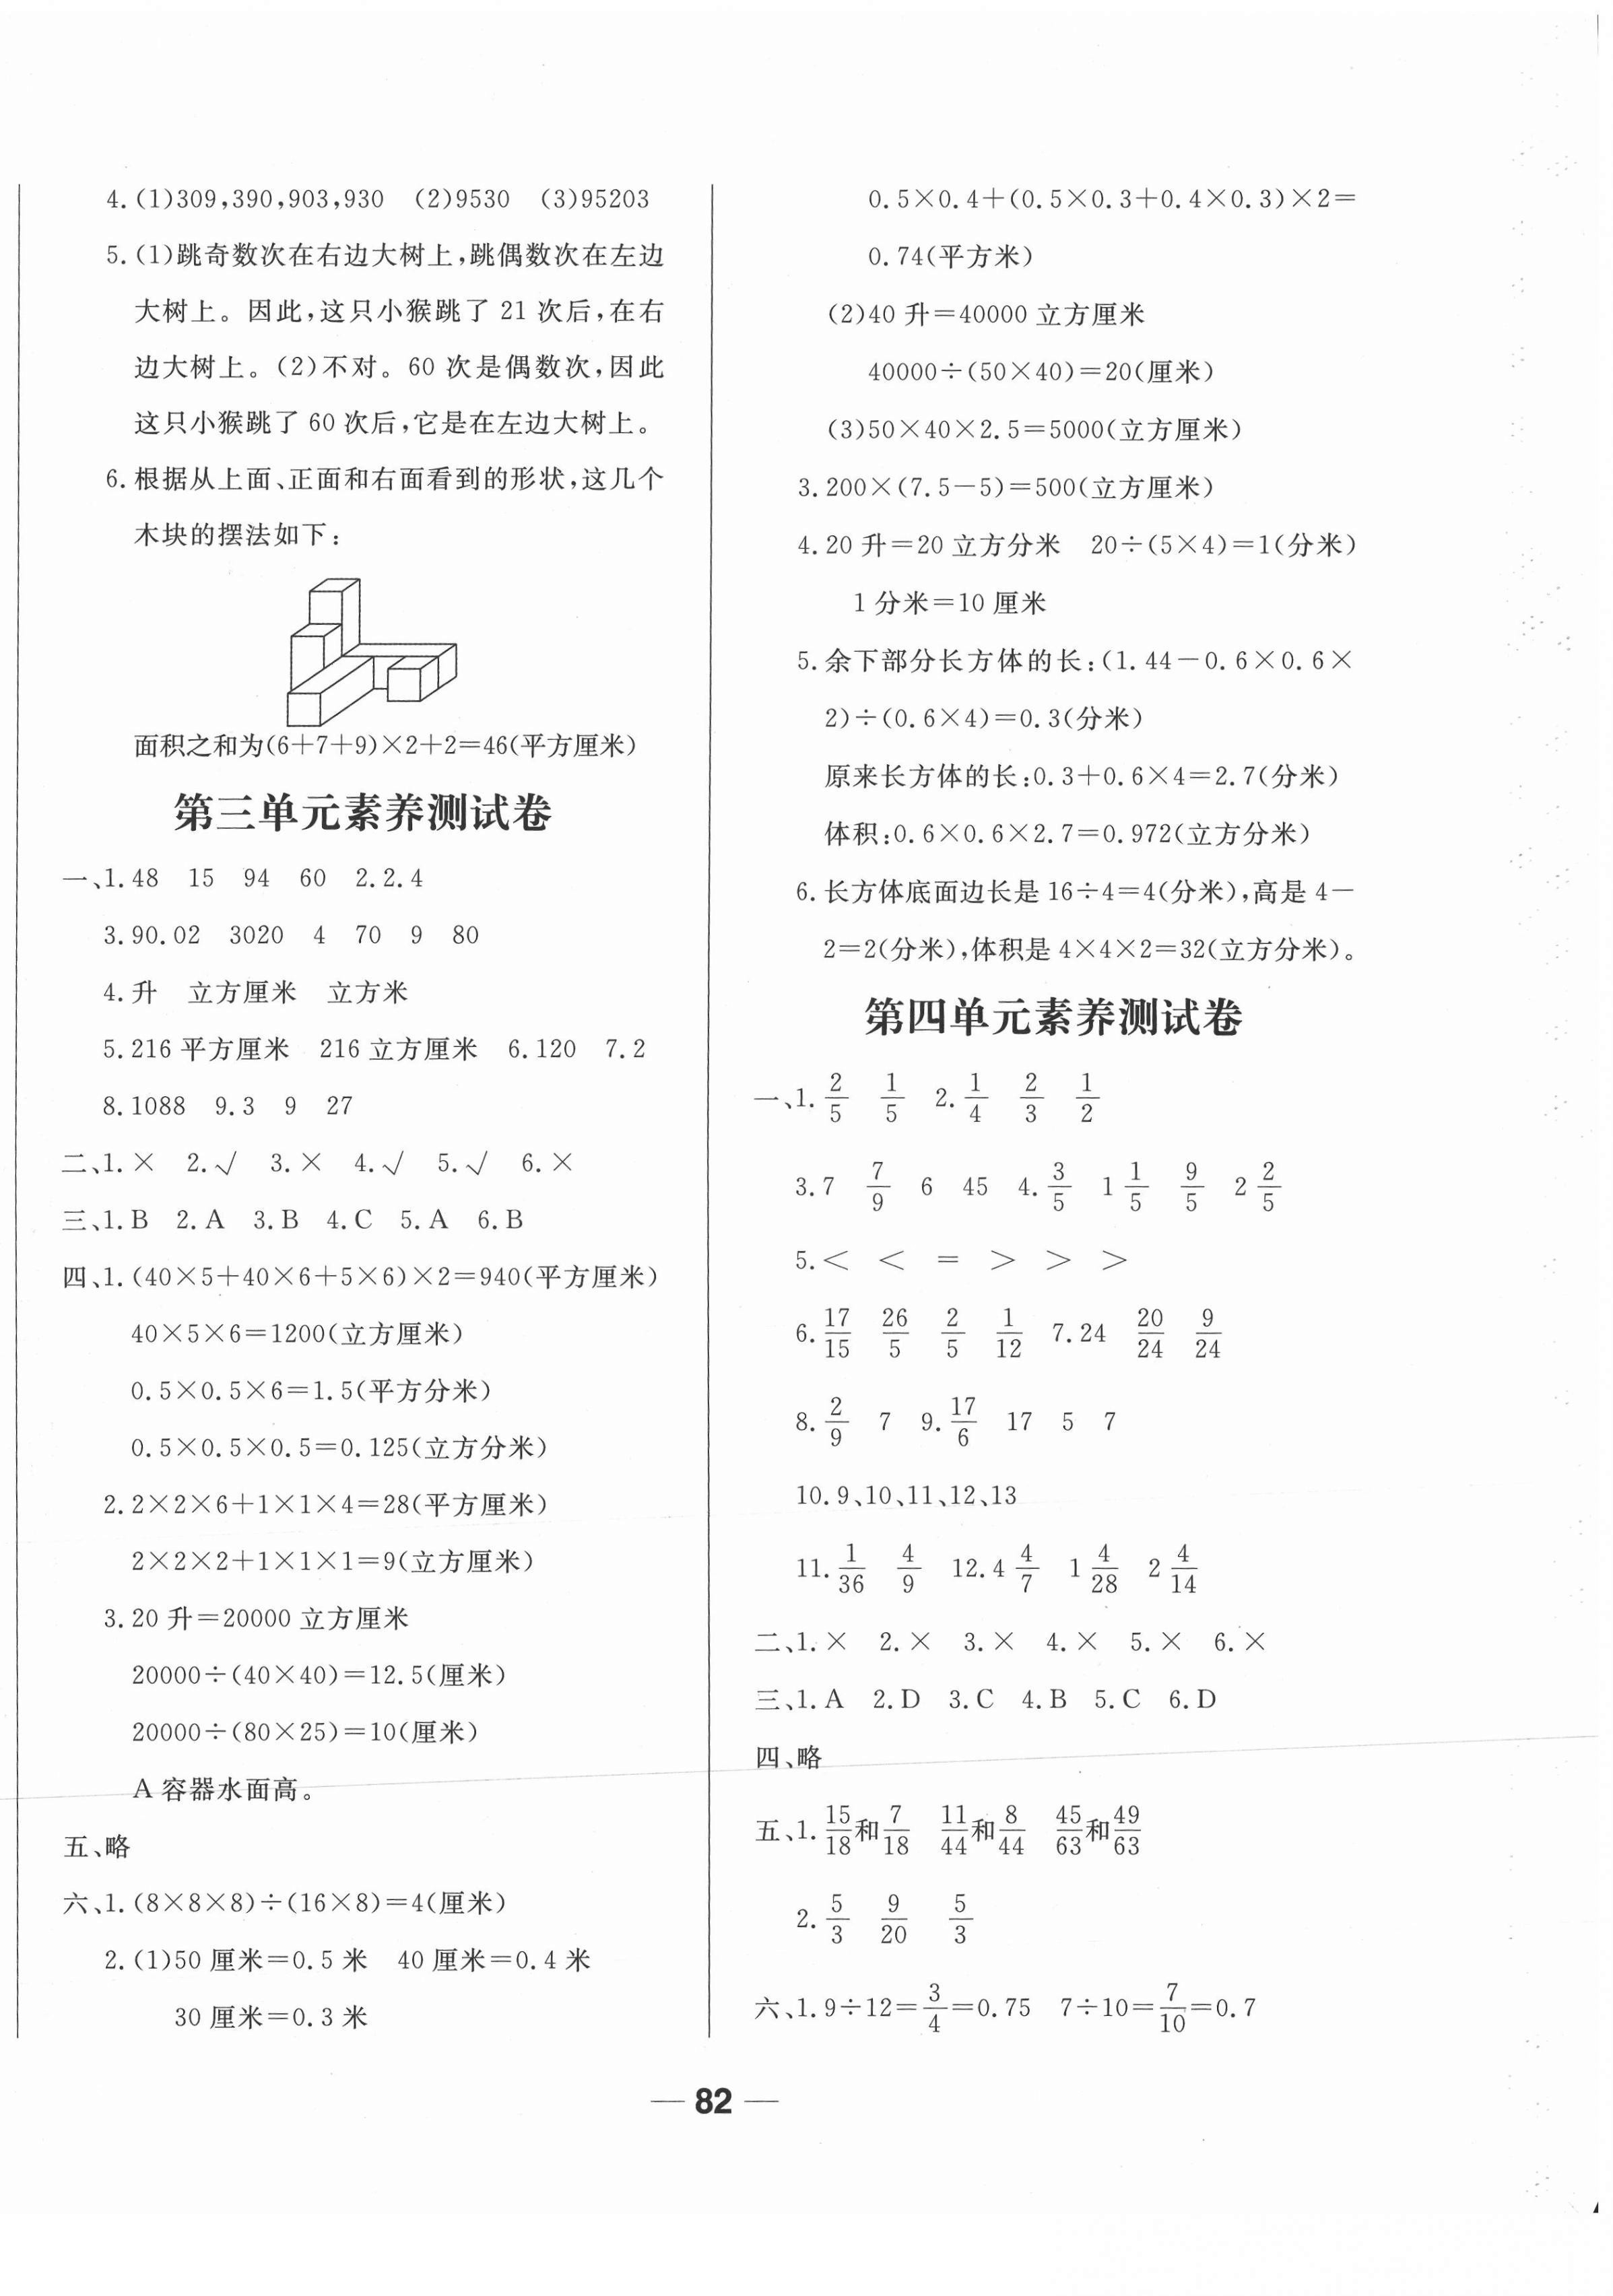 4.(1)309,390,903,930 (2)9530 (3)95203
5.(1)跳奇数次在右边大树上,跳偶数次在左边
大树上。因此,这只小猴跳了 21 次后,在右
边大树上。(2)不对。60 次是偶数次,因此
这只小猴跳了 60 次后,它是在左边大树上。
6.根据从上面、正面和右面看到的形状,这几个
木块的摆法如下:
面积之和为(6+7+9)×2+2=46(平方厘米)
第三单元素养测试卷
一、1.48 15 94 60 2.2.4
3.90.02 3020 4 70 9 80
4.升 立方厘米 立方米
5.216 平方厘米 216 立方厘米 6.120 7.2
8.1088 9.3 9 27
二、1.× 2.√ 3.× 4.√ 5.√ 6.×
三、1.B 2.A 3.B 4.C 5.A 6.B
四、1.(40×5+40×6+5×6)×2=940(平方厘米)
40×5×6=1200(立方厘米)
0.5×0.5×6=1.5(平方分米)
0.5×0.5×0.5=0.125(立方分米)
2.2×2×6+1×1×4=28(平方厘米)
2×2×2+1×1×1=9(立方厘米)
3.20 升=20000 立方厘米
20000÷(40×40)=12.5(厘米)
20000÷(80×25)=10(厘米)
A 容器水面高。
五、略
六、1.(8×8×8)÷(16×8)=4(厘米)
2.(1)50 厘米=0.5 米 40 厘米=0.4 米
30 厘米=0.3 米
0.5×0.4+(0.5×0.3+0.4×0.3)×2=
0.74(平方米)
(2)40 升=40000 立方厘米
40000÷(50×40)=20(厘米)
(3)50×40×2.5=5000(立方厘米)
3.200×(7.5-5)=500(立方厘米)
4.20 升=20 立方分米 20÷(5×4)=1(分米)
1 分米=10 厘米
5.余下部分长方体的长:(1.44-0.6×0.6×
2)÷(0.6×4)=0.3(分米)
原来长方体的长:0.3+0.6×4=2.7(分米)
体积:0.6×0.6×2.7=0.972(立方分米)
6.长方体底面边长是 16÷4=4(分米),高是 4-
2=2(分米),体积是 4×4×2=32(立方分米)。
第四单元素养测试卷
一、1. 2/5 1/5 2. 1/4 2/3 1/2
3.7 7/9 6 45 4. 3/5 1 1/5 9/5 2 2/5
5.< < = > > >
6. 17/15 26/5 2/5 1/12 7.24 20/24 9/24
8. 2/9 7 9. 17/6 17 5 7
10.9、10、11、12、13
11. 1/36 4/9 12.4 4/7 1 4/28 2 4/14
二、1.× 2.× 3.× 4.× 5.× 6.×
三、1.A 2.D 3.C 4.B 5.C 6.D
四、略
五、1. 15/18和7/18 11/44和8/44 45/63和49/63
2. 5/3 9/20 5/3
六、1.9÷12=3/4=0.75 7÷10=7/10=0.7
— 82 —